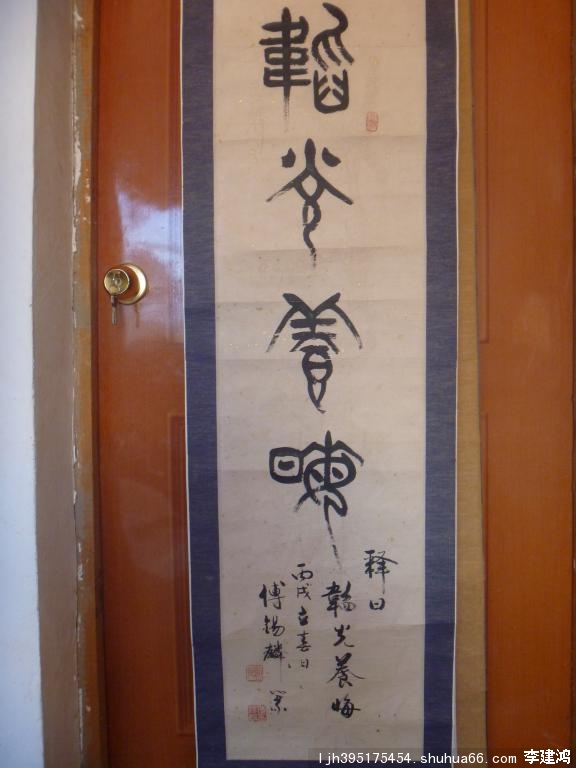 韜光養晦
釋曰
韜光養晦
丙戌立春日
傅錫麟 篆
ljh395175454. shuhua66. com 李建鸿